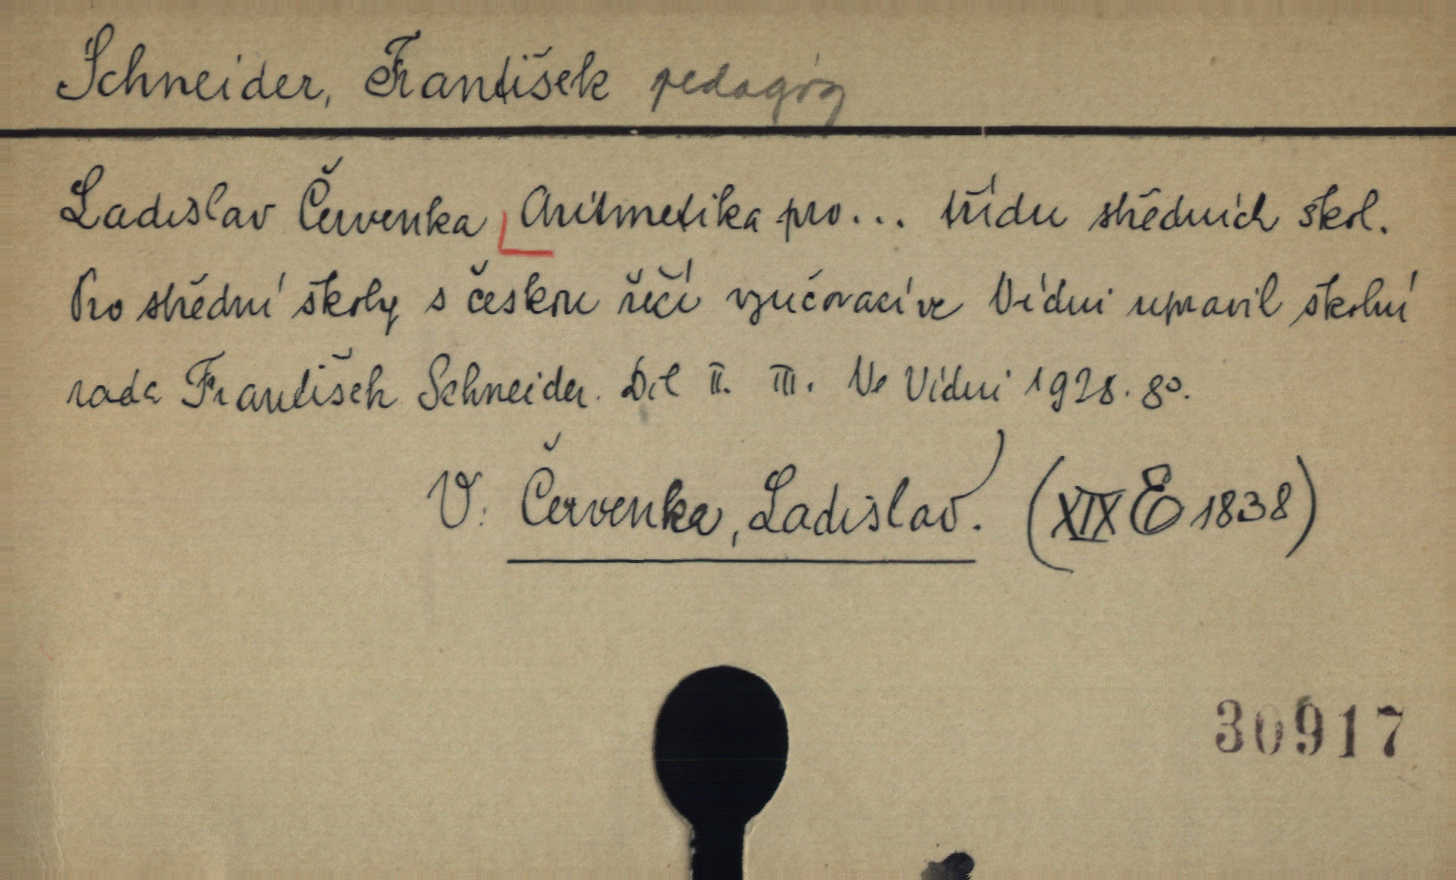 Schneider, František pedagóg
Ladislav Červenka Aritmetika pro... třídu středních škol.
Pro střední školy s českou řečí vyučovací ve Vídni upravil školní
rada František Schneider. Díl II. III. Ve Vídni 1928. 8°.
V. Červenka, Ladislav. (XIX E 1838)
30917